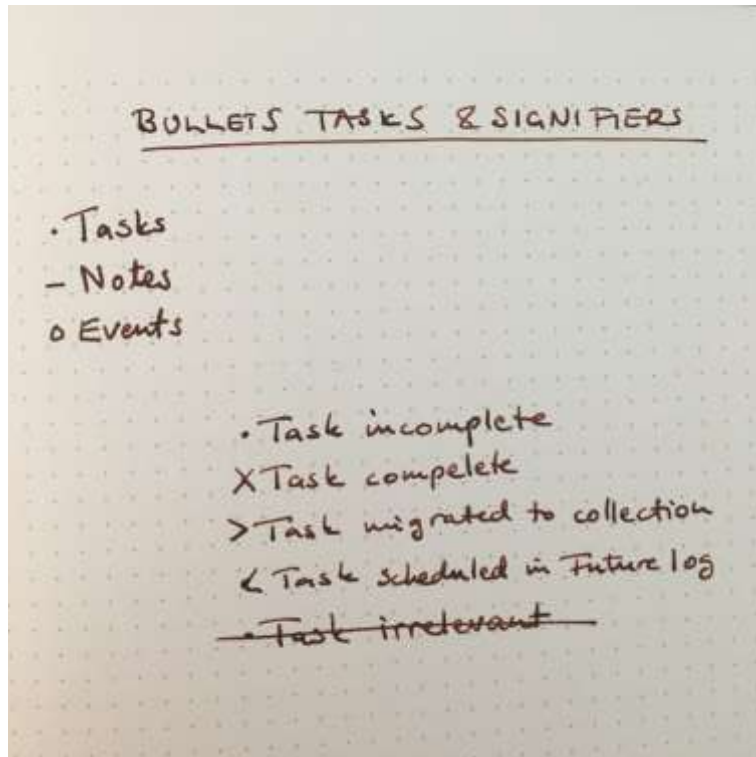 BULLETS TASKS & SIGNIFIERS
· Tasks
– Notes
o Events
· Task incomplete
X Task compelete
> Task migrated to collection
< Task scheduled in Future log
· Task irrelevant